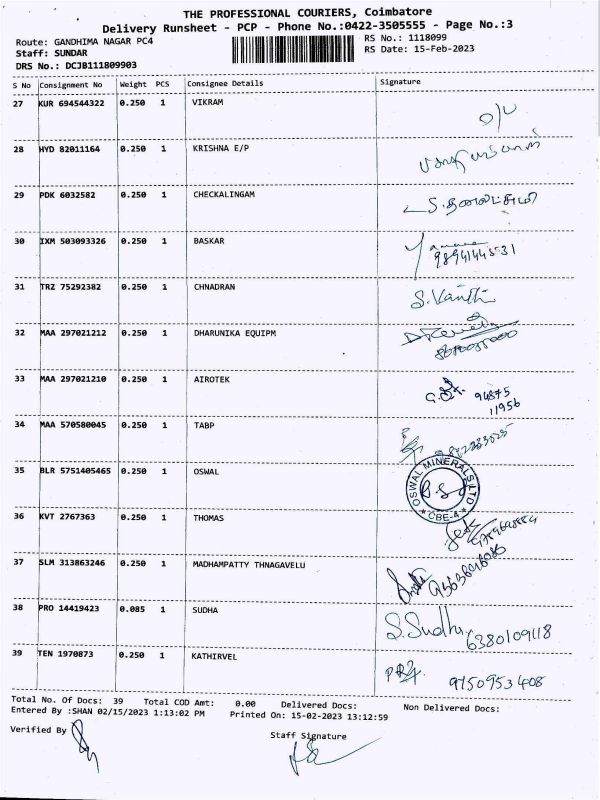 THE PROFESSIONAL COURIERS, Coimbatore
Delivery Runsheet - PCP - Phone No.:0422-3505555 - Page No.:3
Route: GANDHIMA NAGAR PC4 RS No.: 1118099
Staff: SUNDAR RS Date: 15-Feb-2023
DRS No.: DCJB111809903
S No Consignment No Weight PCS Consignee Details Signature
27 KUR 694544322 0.250 1 VIKRAM
28 HYD 82011164 0.250 1 KRISHNA E/P
29 PDK 6032582 0.250 1 CHECKALINGAM
30 IXM 503093326 0.250 1 BASKAR
9894144531
31 TRZ 75292382 0.250 1 CHNADRAN S.Vanthi
32 MAA 297021212 0.250 1 DHARUNIKA EQUIPM
33 MAA 297021210 0.250 1 AIROTEK 94875
11956
34 MAA 570580045 0.250 1 TABP
35 BLR 5751405465 0.250 1 OSWAL OSWAL MINERALS LTD
CBE-4
36 KVT 2767363 0.250 1 THOMAS
37 SLM 313863246 0.250 1 MADHAMPATTY THNAGAVELU
38 PRO 14419423 0.085 1 SUDHA S.Sudha 6380109118
39 TEN 1970873 0.250 1 KATHIRVEL 9750953408
Total No. Of Docs: 39 Total COD Amt: 0.00 Delivered Docs: Non Delivered Docs:
Entered By :SHAN 02/15/2023 1:13:02 PM Printed On: 15-02-2023 13:12:59
Verified By Staff Signature